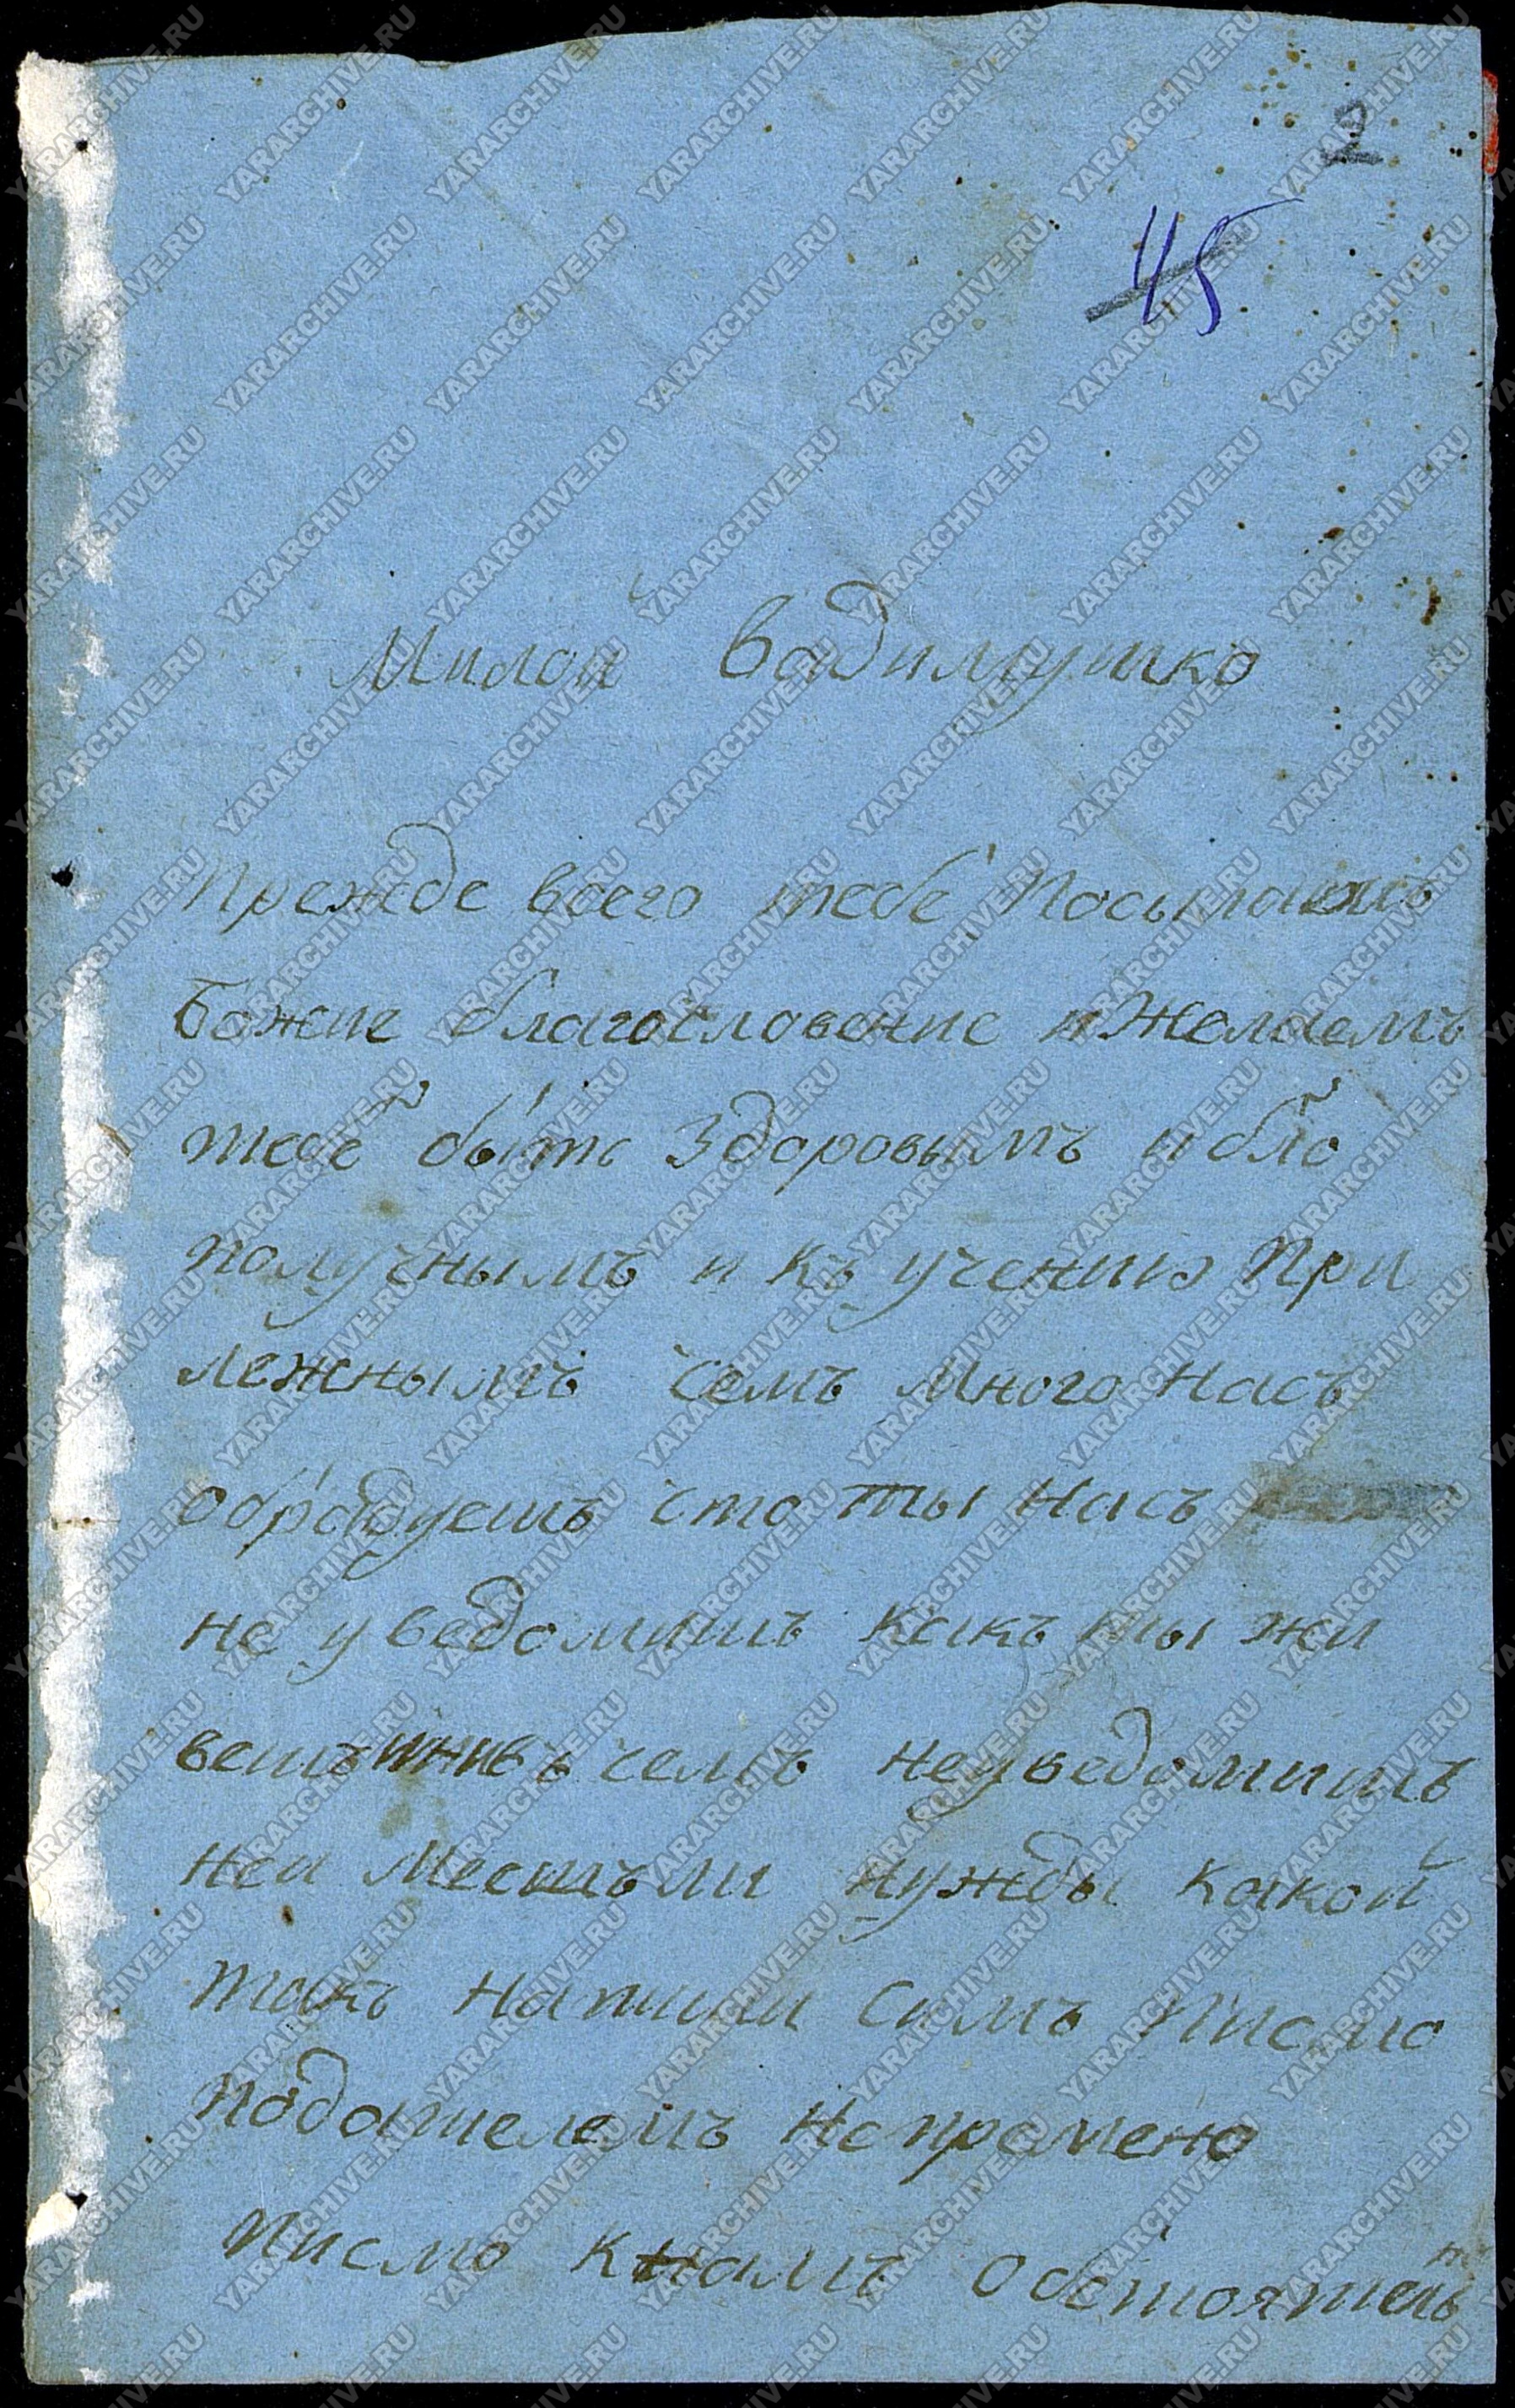 2
45
Милой Вадимушко
Прежде всего тебе Посылаемъ
Божие благословение и Желаемъ
тебе быть Здоровымъ и бла
получнымъ и къ учению При
лежнымъ чемъ много насъ
обрадуешъ что ты насъ
не уведомишъ какъ ты жи
вешъ чемъ неуведомишъ
ли нужды какой
такъ напиши симъ писмо
подателемъ непремено
писмо кнамъ обстоятель